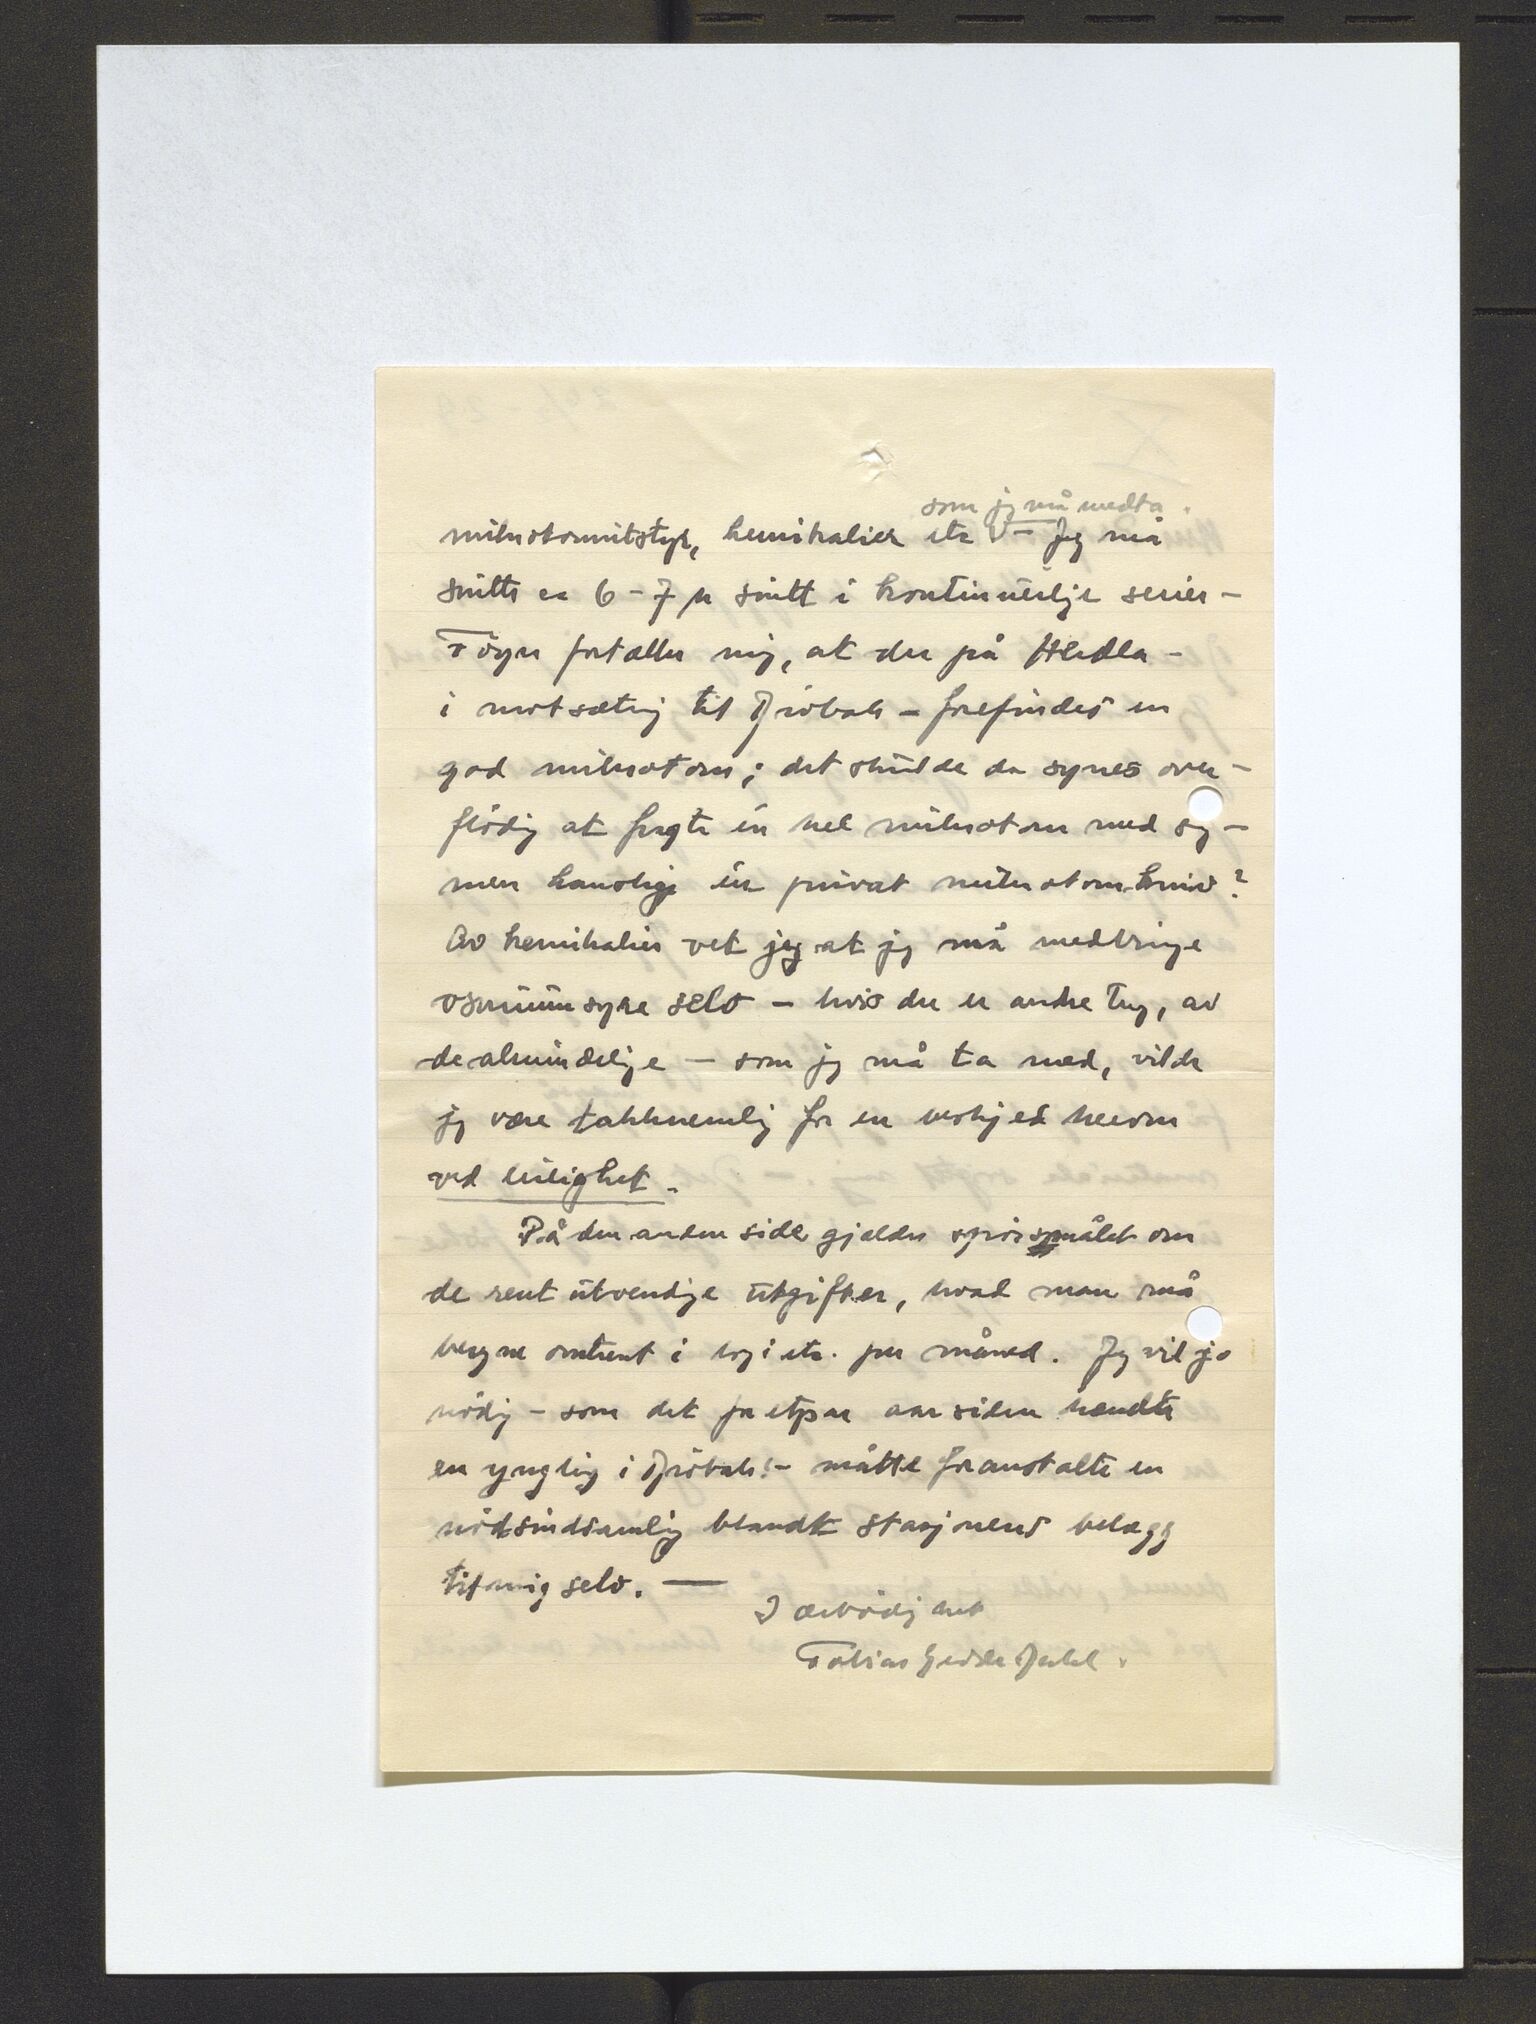 som jeg må medta.
mikrotomutstyr, kemikalier etc V – Jeg må
snitte ca 6 – 7 µ snitt i kontinuerlige serier –
Föyn fortæller mig, at der på Herdla –
i motsætnig til Dröbak – forefindes en
god mikrotom; det skulde da synes over-
flödig at fragte en hel mikrotom med sig –
men kanskje en privat mikrotomkniv?
Av kemikalier vet jeg at jeg må medbringe
osmiumsyre selv – hvis der er andre ting, av
de almindelige – som jeg må ta med, vilde
jeg være takknemlig for en beskjed herom
ved leilighet.
På den anden side gjælder spörsmålet om
de rent utvendige utgifter, hvad man må
beregne omtrent i logi etc. per måned. Jeg vil jo
nödig – som det for etpar aar siden hændte
en yngling i Dröbak! – måtte foranstalte en
nödsindsamlig blandt stasjonens belægg
til mig selv. —
I ærbödighet
Tobias Gedde Dahl.